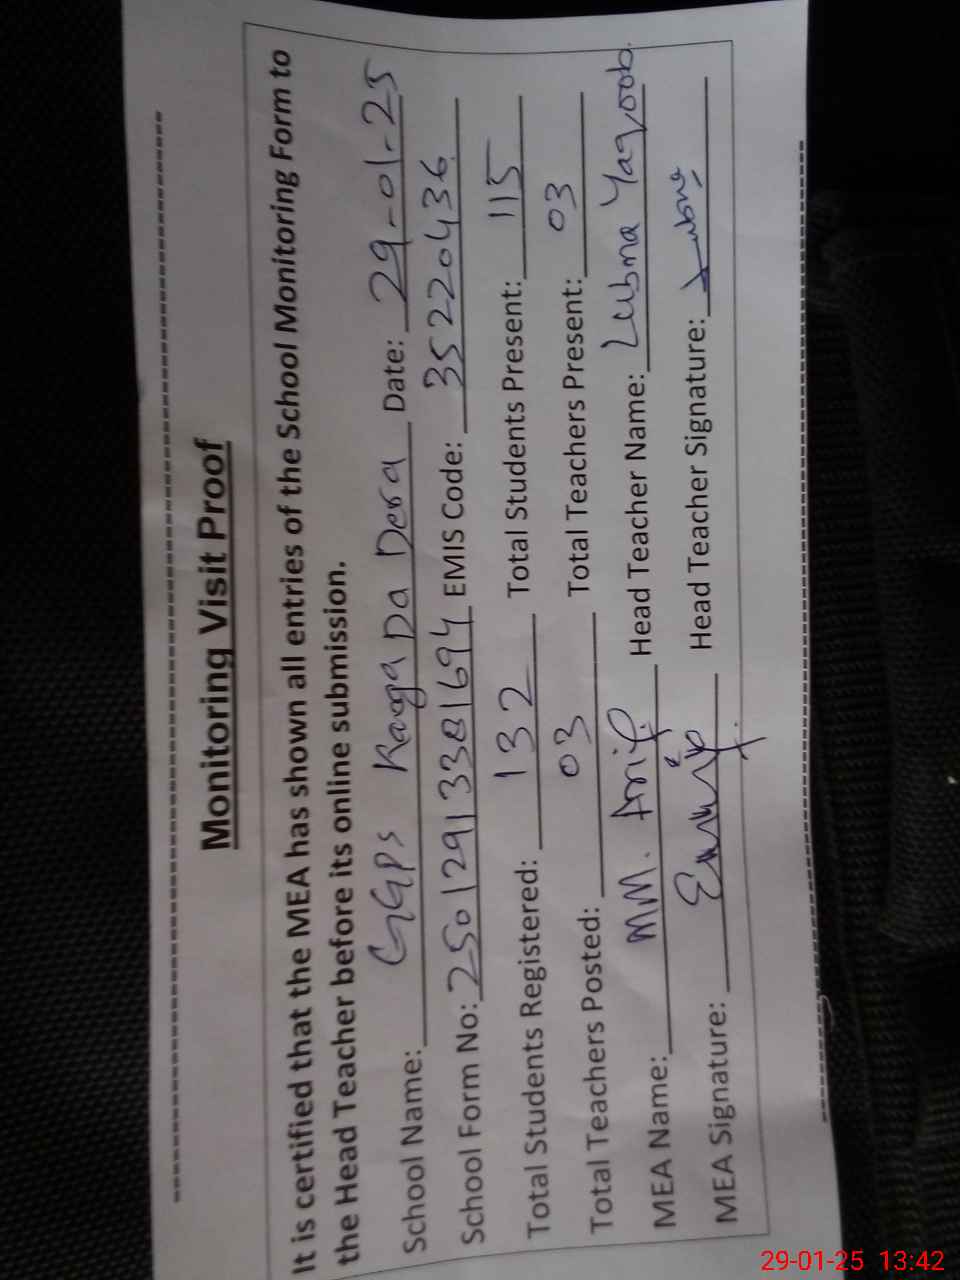 Monitoring Visit Proof
It is certified that the MEA has shown all entries of the School Monitoring Form to
the Head Teacher before its online submission.
School Name: GGPS Ranga Da Dera Date: 29-01-25
School Form No: 25012913381694 EMIS Code: 35220436
Total Students Registered: 132 Total Students Present: 115
Total Teachers Posted: 03 Total Teachers Present: 03
MEA Name: MM. Arif Head Teacher Name: Lubna Yaqoob.
MEA Signature: Head Teacher Signature: Lubna
29-01-25 13:42